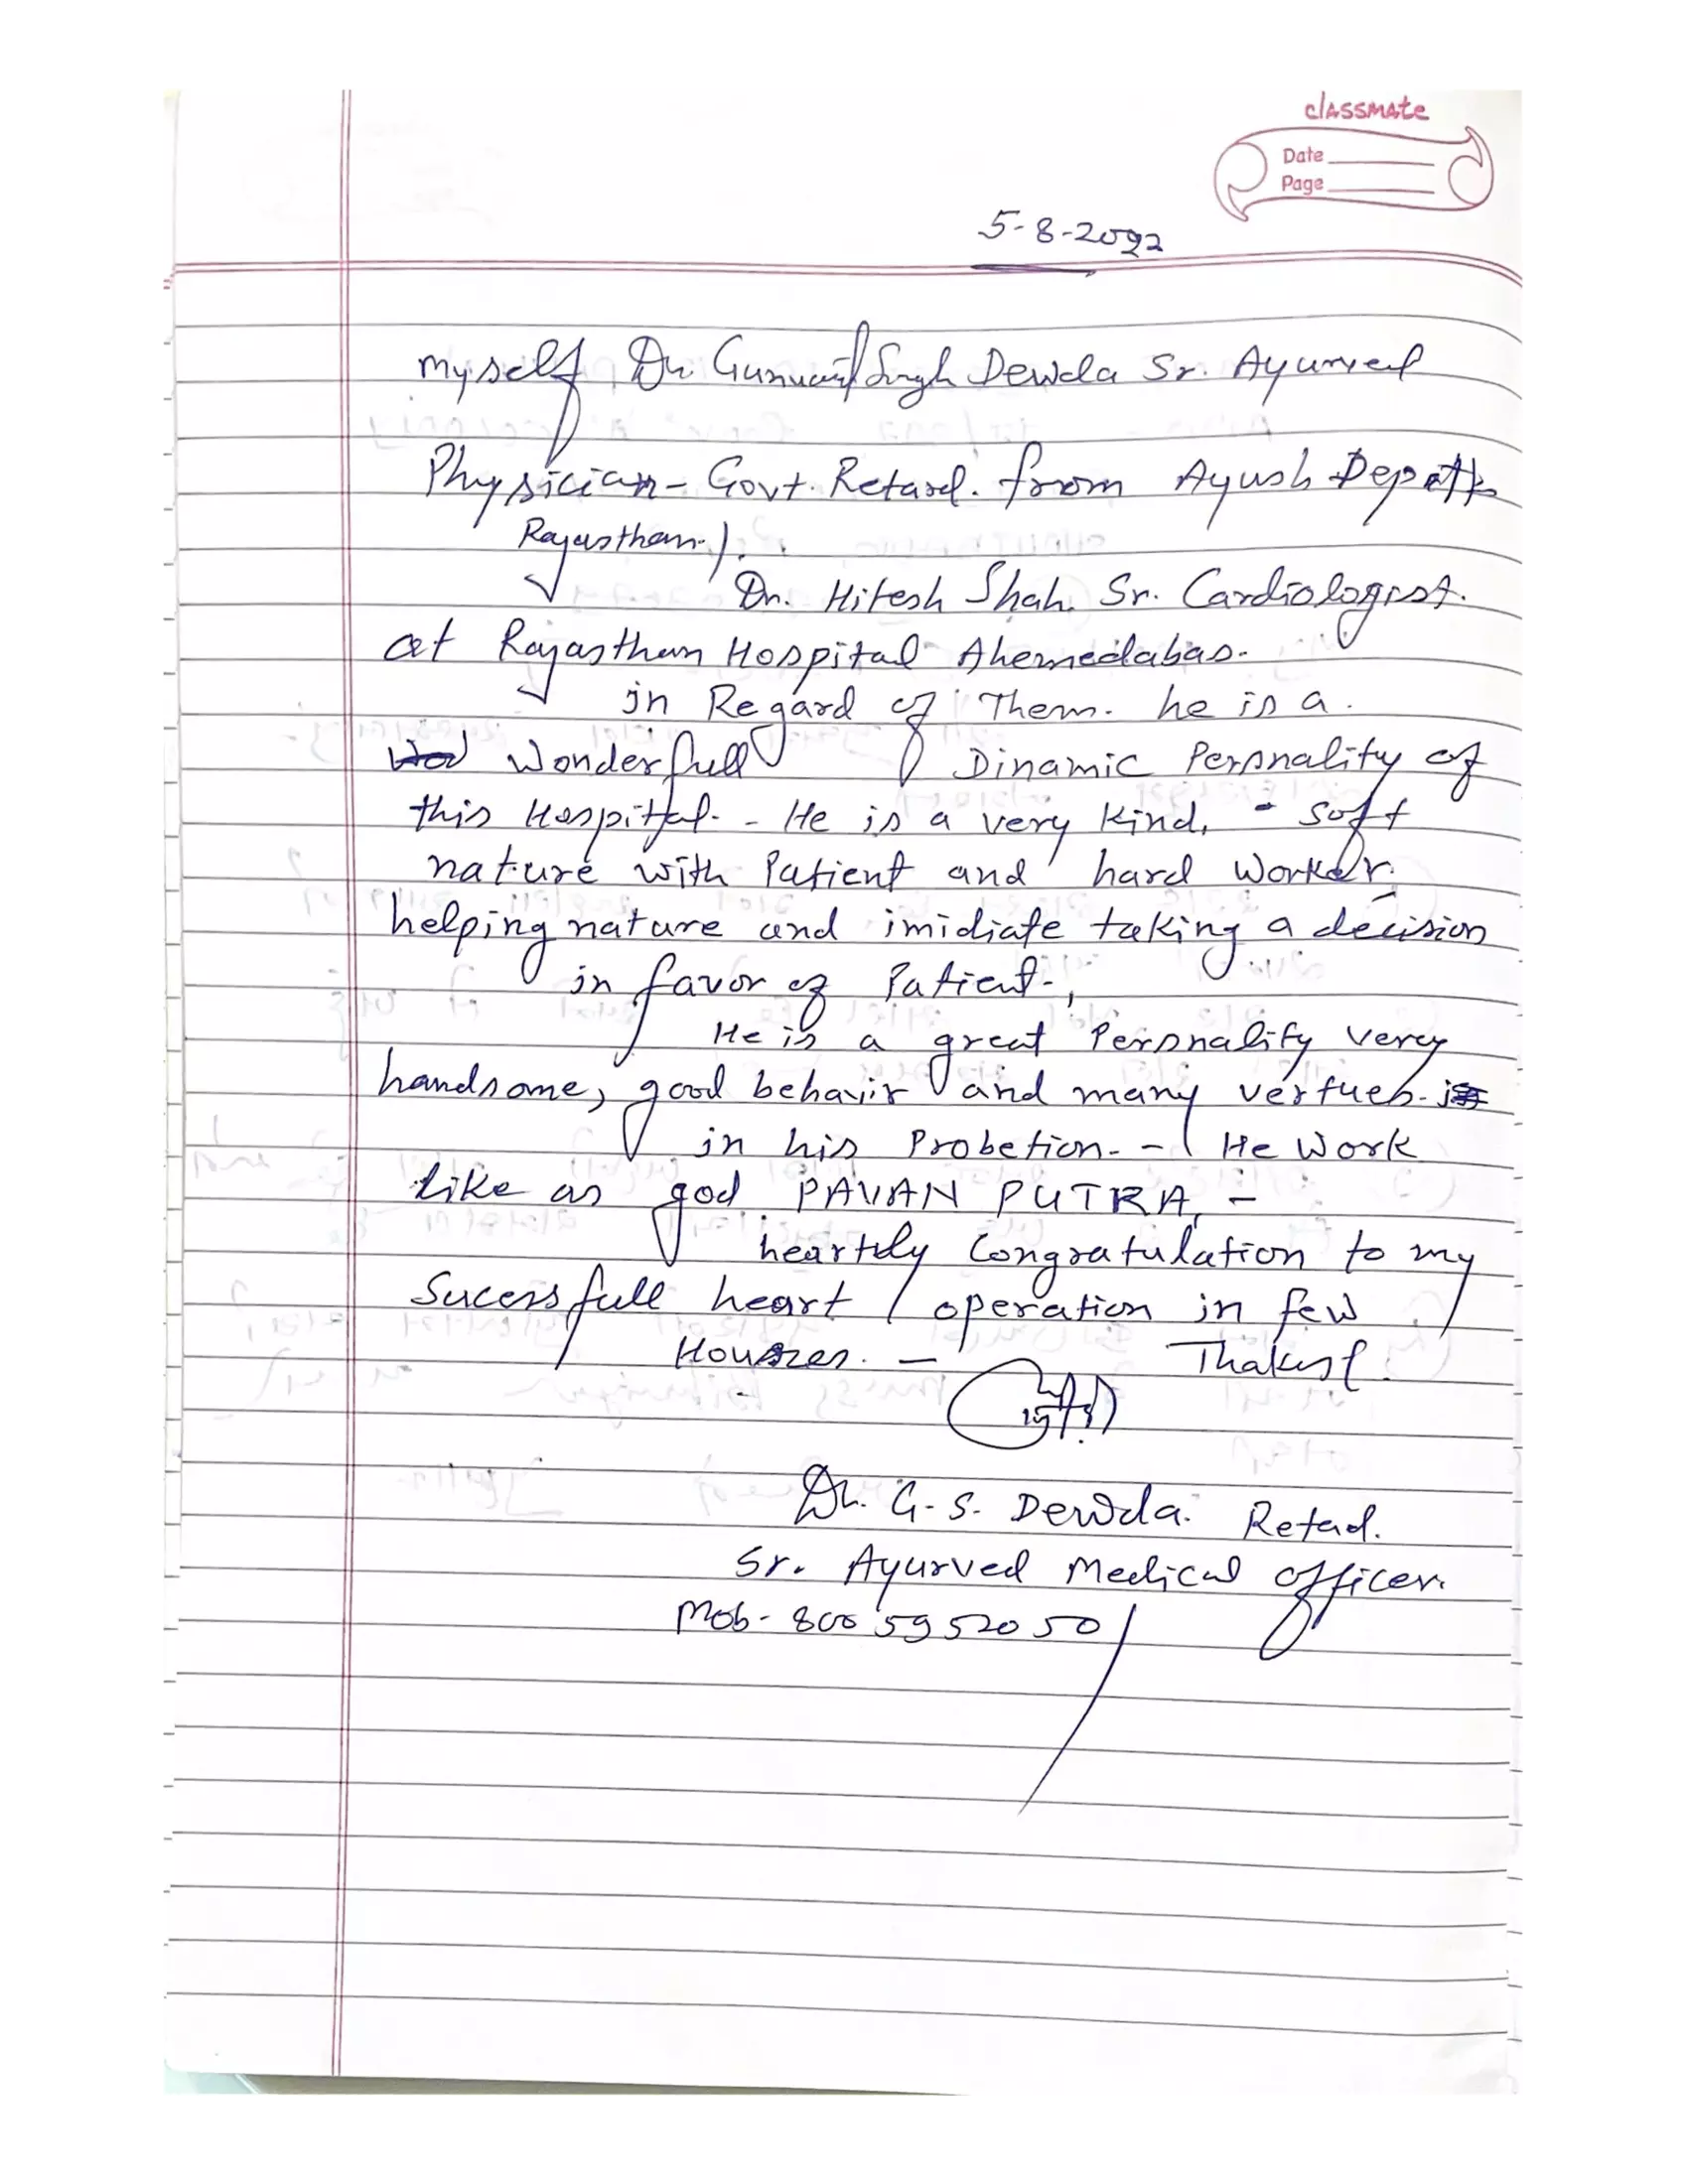 classmate
Date
Page
5-8-2022
myself Dr. Gunwant Singh Dewda Sr. Ayurved
Physician - Govt. Retard. from Ayush Depatt
Rajasthan).
Dr. Hitesh Shah. Sr. Cardiologist.
at Rajasthan Hospital Ahemedabas.
in Regard of Them. he is a.
Wonderfull Dinamic Persnality of
this Hospital. - He is a very Kind, - soft
nature with Patient and hard Worker.
helping nature and imidiate taking a decision
in favor of Patient-,
He is a great Persnality very
handsome, good behavir and many vertues.
in his Probetion. - He Work
like as god PAVAN PUTRA, -
heartely Congratulation to my
Sucessfull heart operation in few
Houres. -
Dr. G. S. Dewda. Retad.
Sr. Ayurved Medical Officer.
Mob- 8005952050